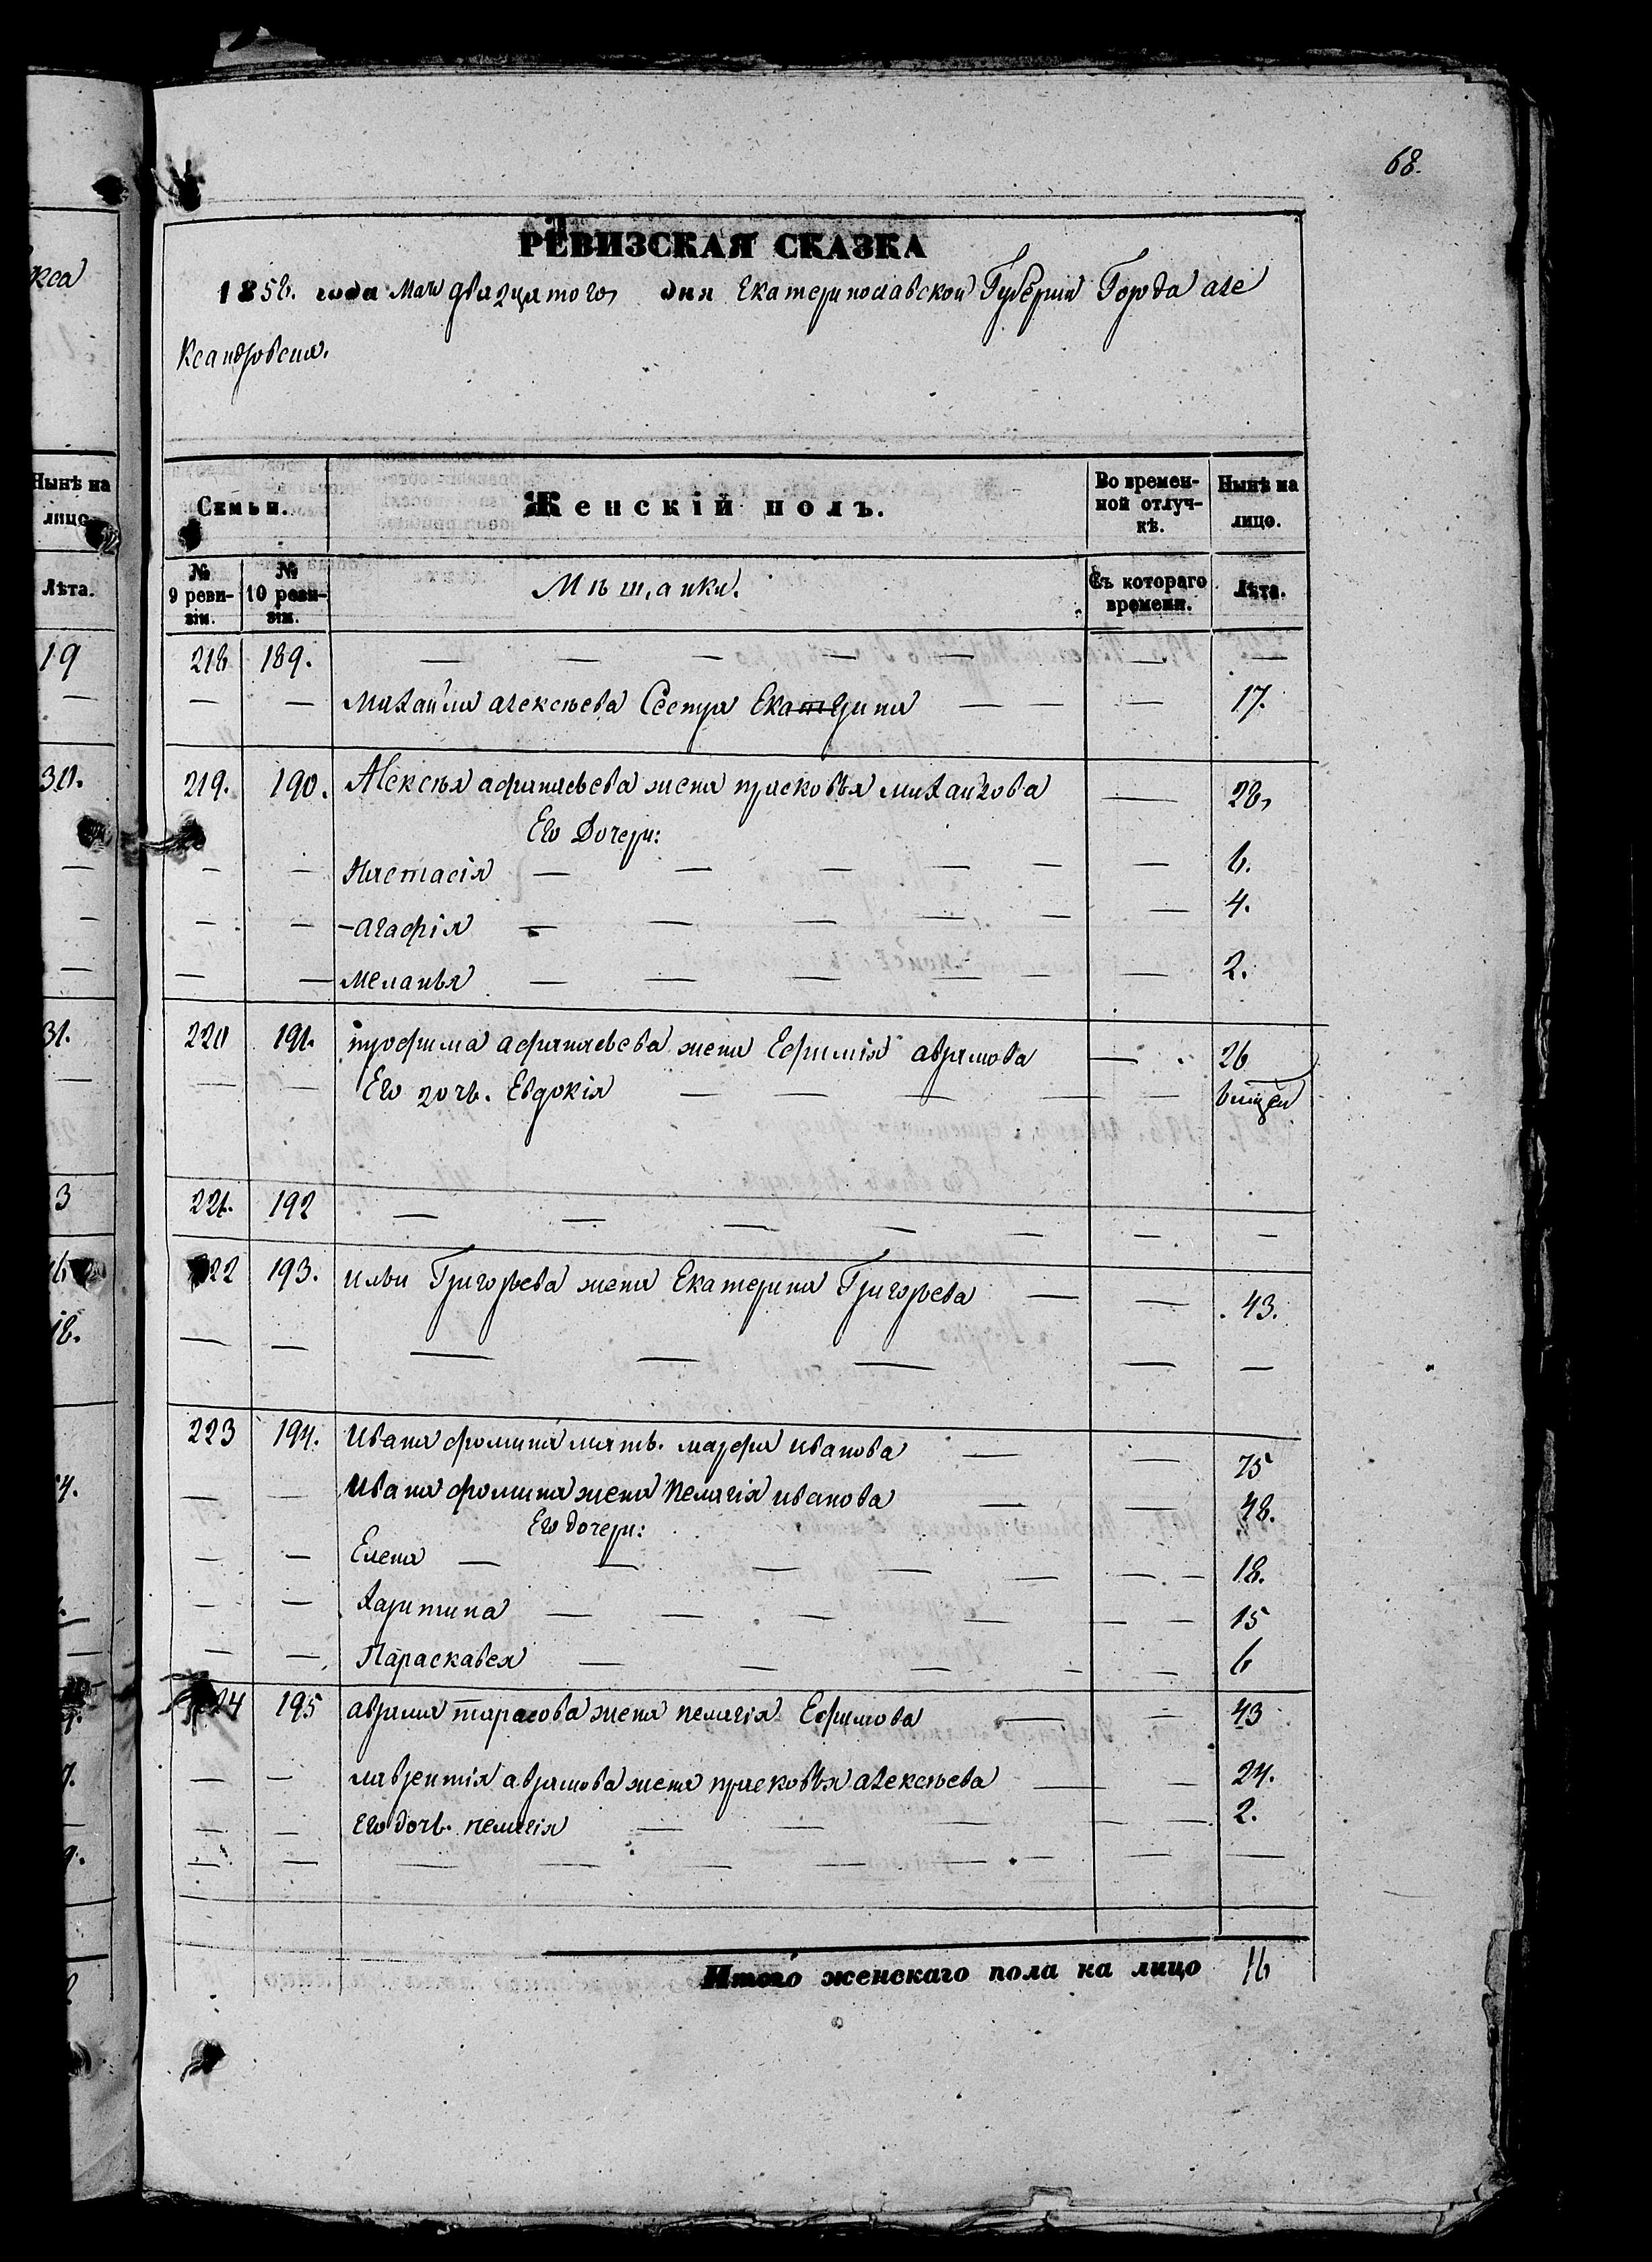 кса
68.
РЕВИЗСКАЯ СКАЗКА
1858. года Мая двадцятого дня Екатеринославской Губерніи Города але
ксандровска.
Нынѣ на лицо
Семьи. Женскій полъ. Во временной отлучкѣ. Нынѣ на лицо.
Лѣта.
№ 9 ревизіи. № 10 ревизіи. Мѣщанки. Съ котораго времени. Лѣта.
19
218 189. — — — — — — —
— — Михайла алексѣева Сестра Екатерина — — — 17.
30.
219. 190. Алексѣя афанасьева жена прасковья михайлова — 28,
Его Дочери:
— — Настасія — — — — — — 6.
— — агафія — — — — — — 4.
— — меланья — — — — — — 2.
31.
220 191. трофима афанасьева жена Ефимія аврамова — 26
— — Его дочь. Евдокія — — — — —
221. 192 — — — — — — —
3
222 193. ильи Григорьева жена Екатерина Григорьева — — 43.
18.
— — — — — — —
223 194. Ивана фомина мать. марфа иванова — — 75
— — Ивана фомина жена Пелагія иванова — — 48.
Его дочери:
— — Елена — — — — — — — 18.
— — Харитина — — — — — — 15
— — Параскавея — — — — — 6
224 195 аврама тарасова жена пелагія Ефимова — — 43
— — лаврентія аврамова жена прасковья алексѣева — — 24.
— — его дочь. пелагія — — — — — 2.
— — — — — — — — — —
Итого женскаго пола на лицо 16